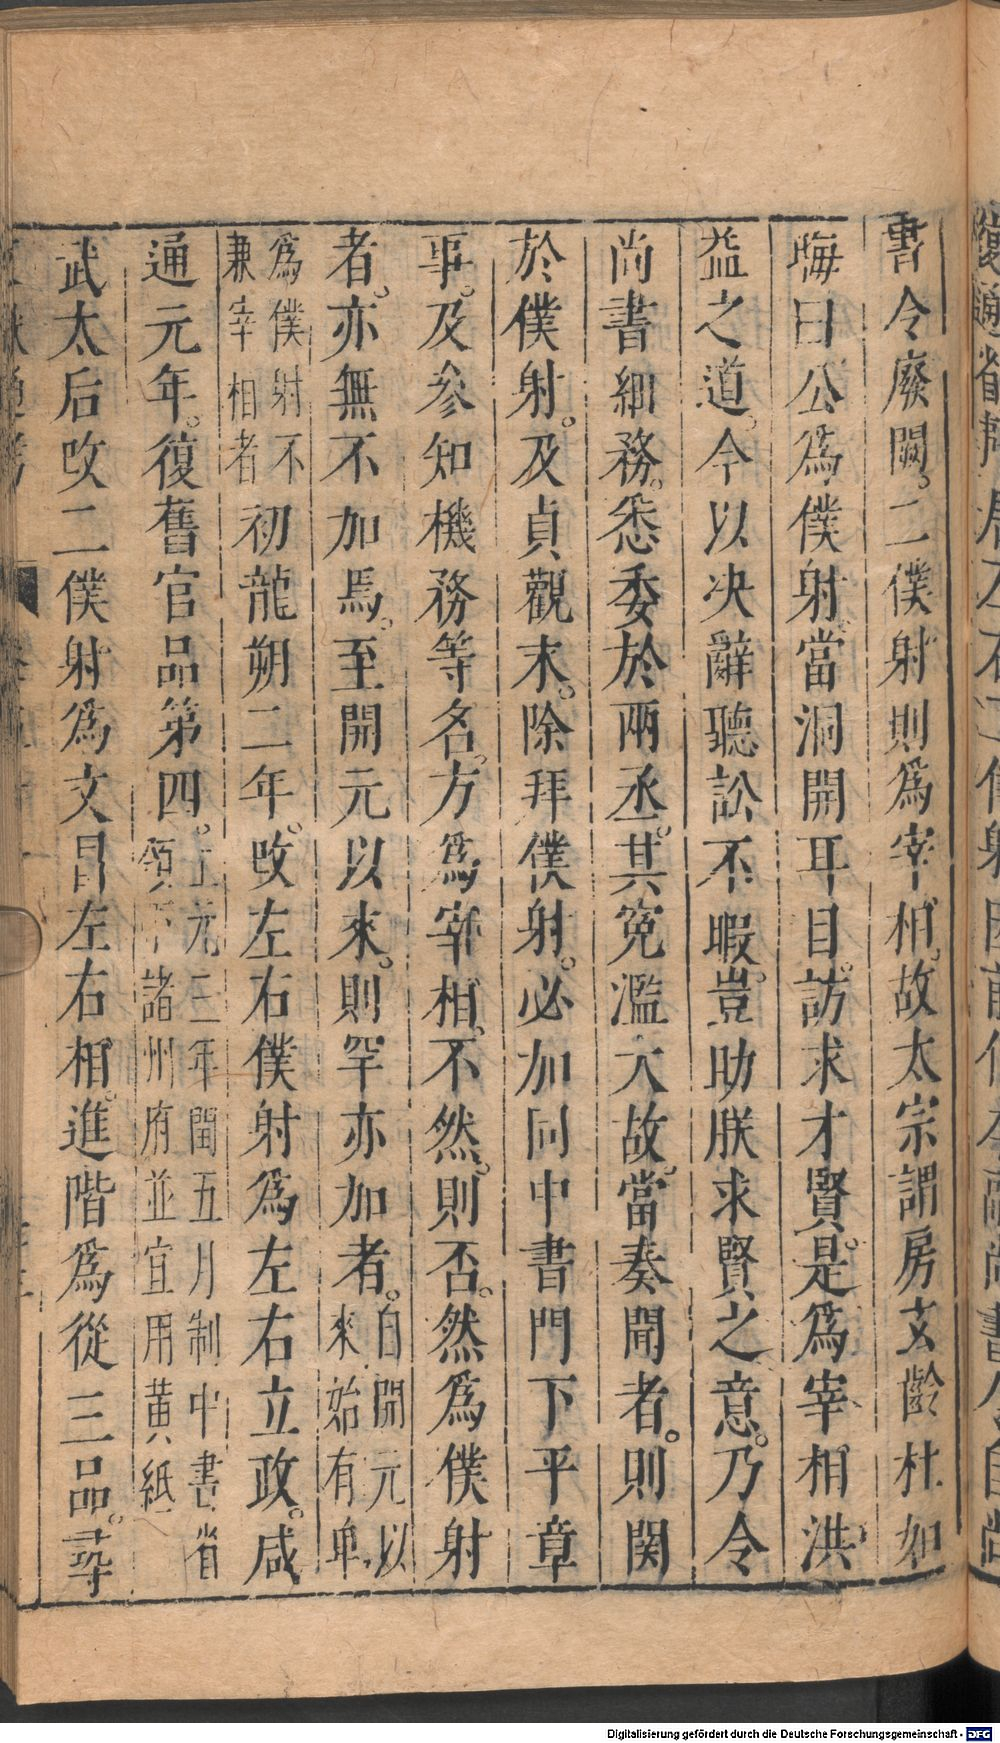 書令廢闕。二僕射則爲宰相。故太宗謂房玄齡杜如
晦曰公爲僕射當洞開耳目。訪求才賢。是爲宰相洪
益之道。今以决辭聽訟不暇。豈助朕求賢之意。乃令
尚書細務。悉委於兩丞。其寃濫大故。當奏聞者。則関
於僕射。及貞觀末。除拜僕射。必加同中書門下平章
事。及參知機務等名。方爲宰相。不然。則否。然爲僕射
者。亦無不加焉。至開元以來。則罕亦加者。自開元以
來始有單
爲僕射不
兼宰相者初龍朔二年。改左右僕射爲左右立政。咸
通元年。復舊官品第四。上元三年閏五月制中書省
頒下諸州府並宜用黃紙
武太后改二僕射爲文昌左右相。進階爲從三品。尋
Digitalisierung gefördert durch die Deutsche Forschungsgemeinschaft - DFG